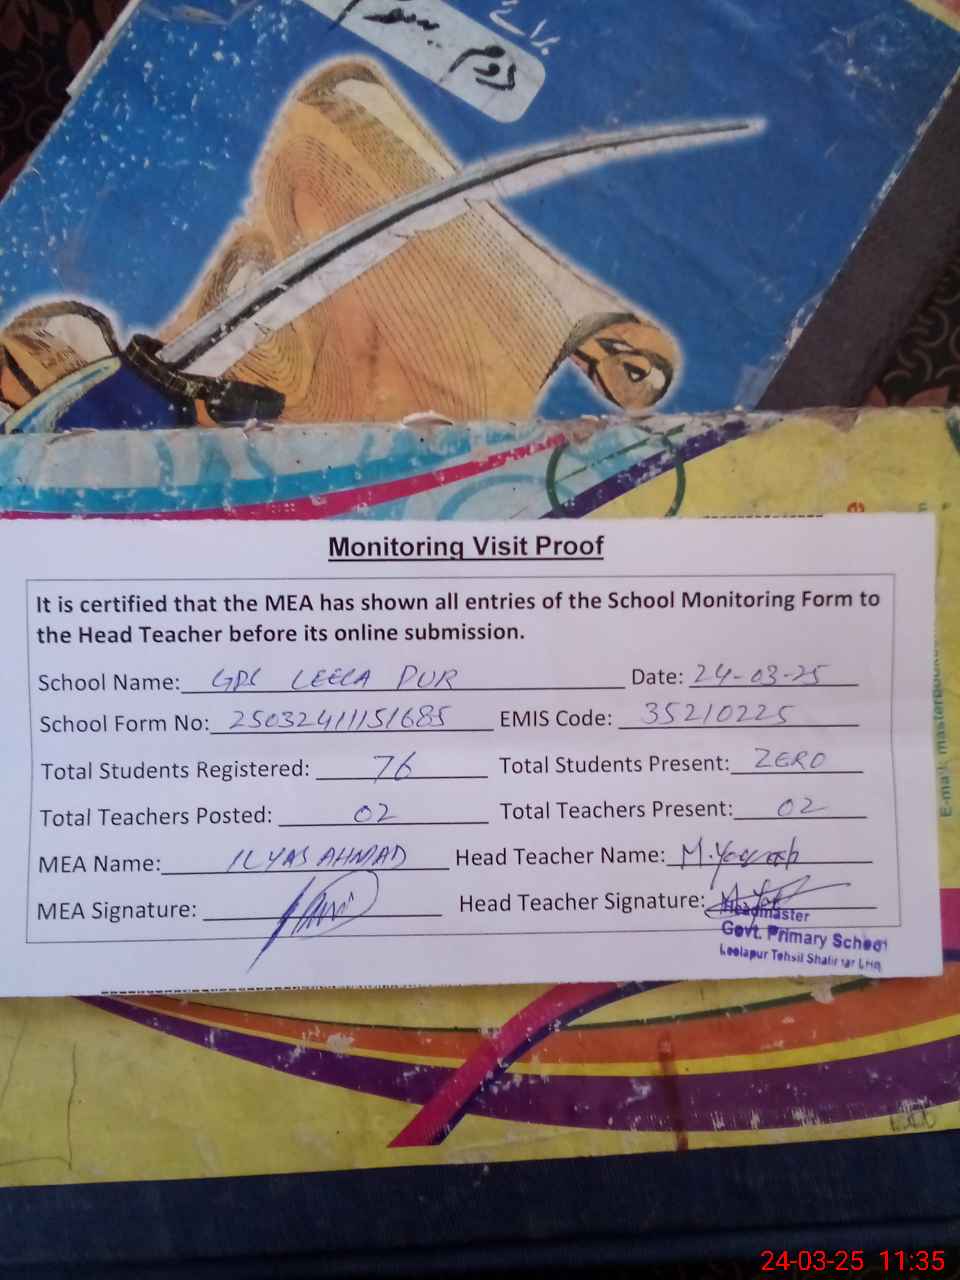 برائے
دوم
Monitoring Visit Proof
It is certified that the MEA has shown all entries of the School Monitoring Form to
the Head Teacher before its online submission.
School Name: GPS LEELA PUR Date: 24-03-25
School Form No: 25032411151685 EMIS Code: 35210225
Total Students Registered: 76 Total Students Present: ZERO
Total Teachers Posted: 02 Total Teachers Present: 02
MEA Name: ILYAS AHMAD Head Teacher Name: M.Yaqoob
MEA Signature: Head Teacher Signature:
Headmaster
Govt. Primary School
Leelapur Tehsil Shalimar LHR
24-03-25 11:35